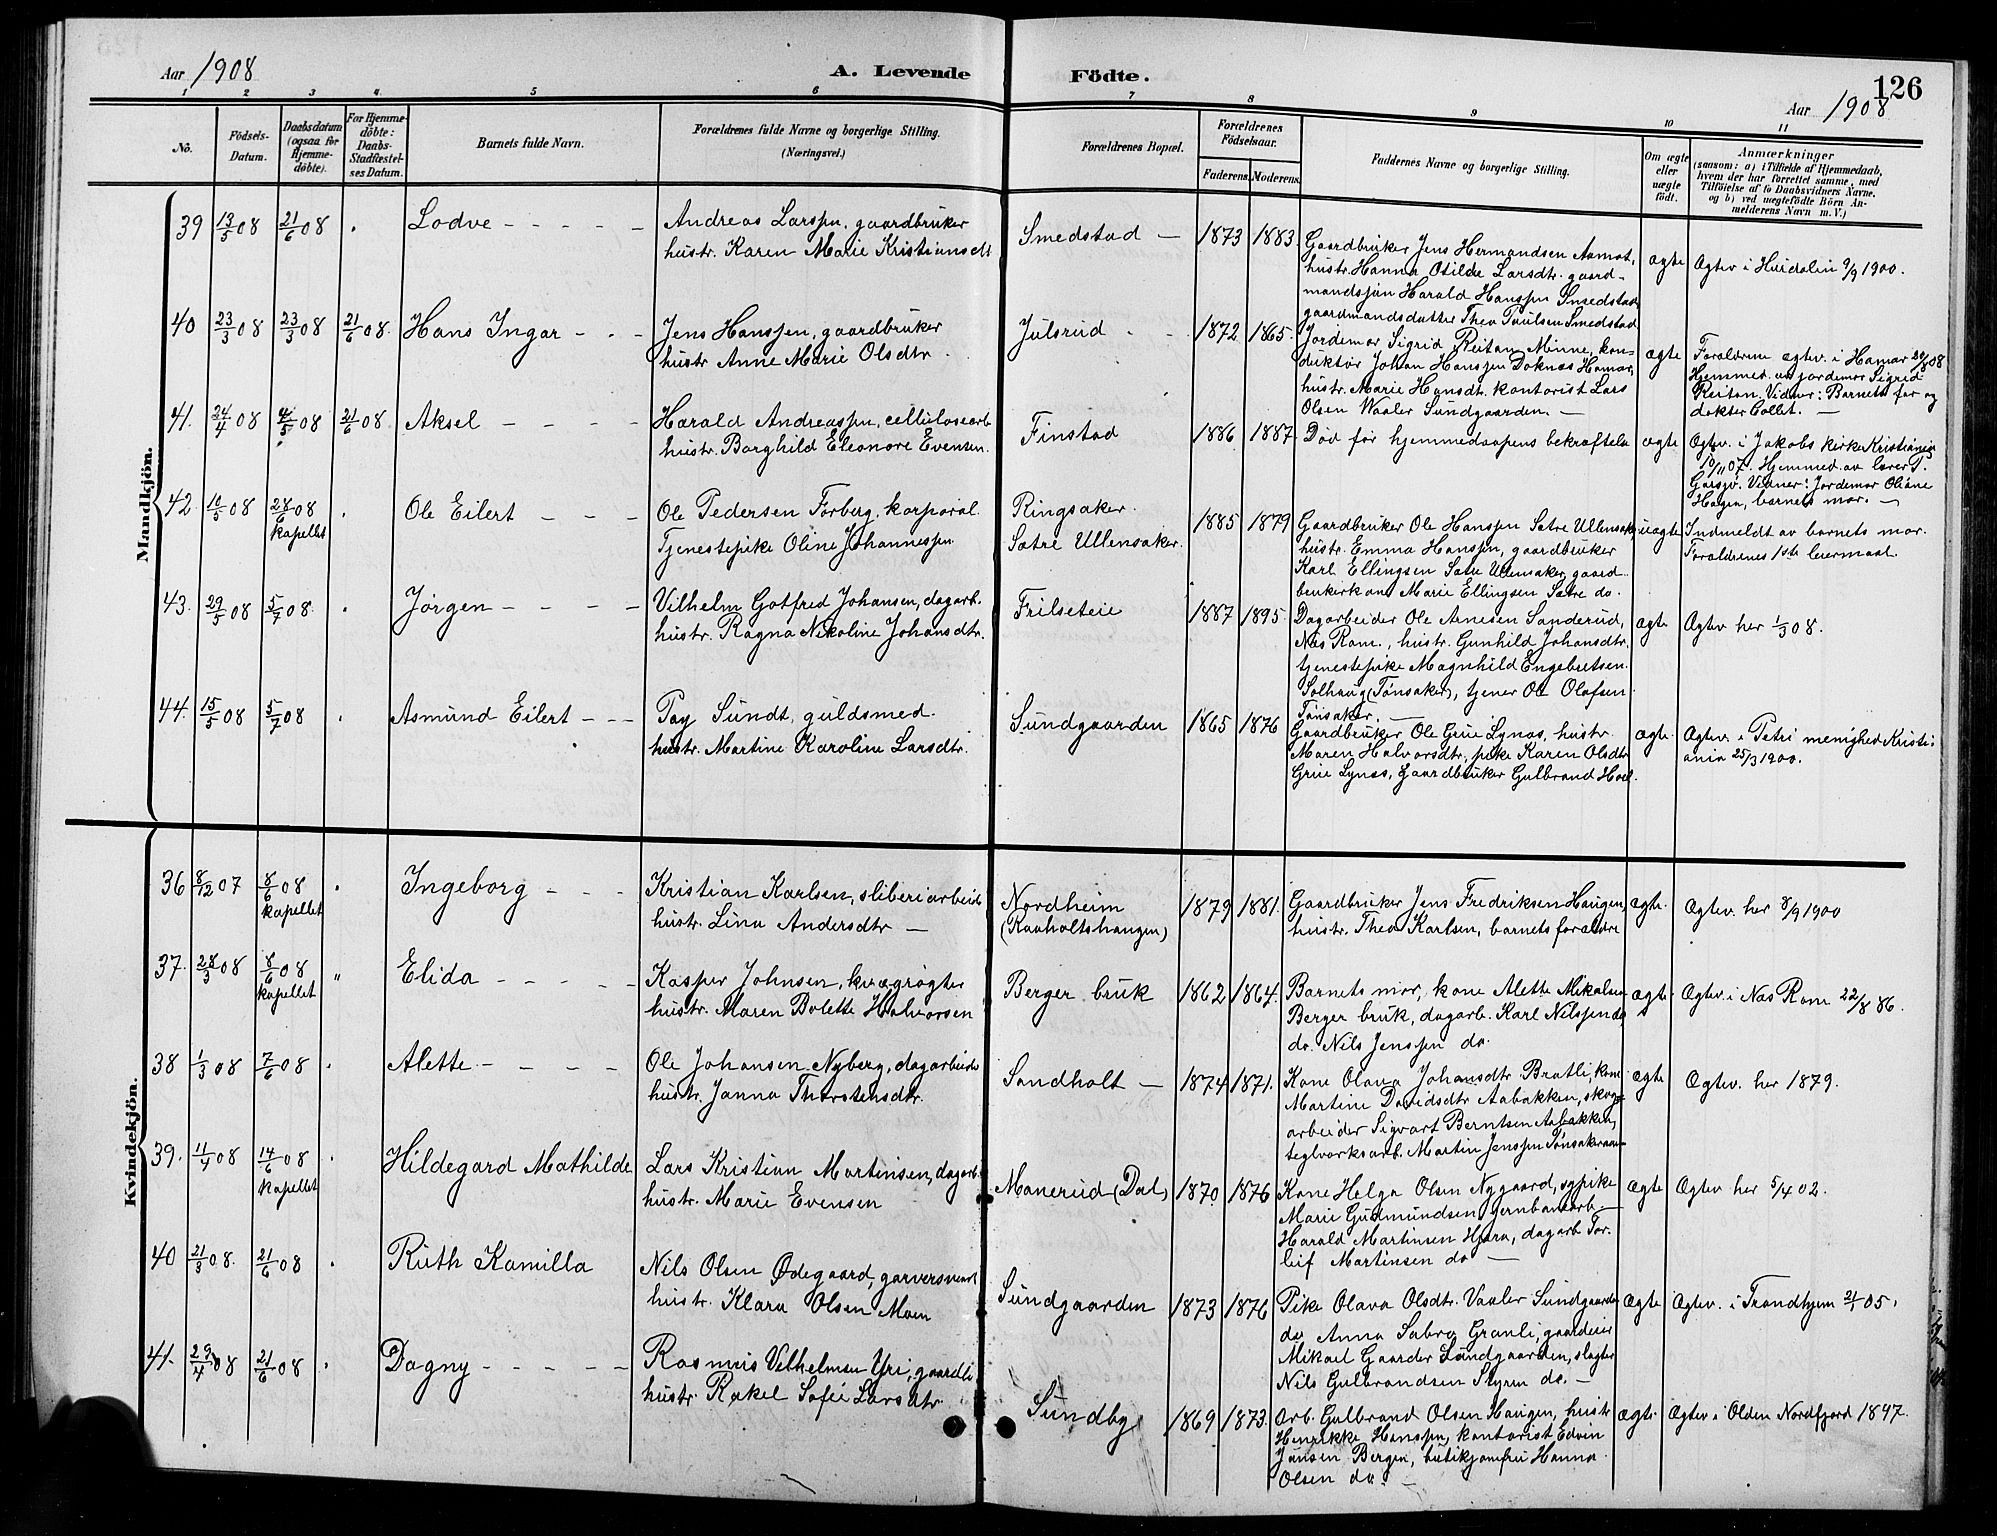 Aar 1908
A. Levende Födte.
126
Aar 1908
1 2 3 4 5 6 7 8 9 10 11
No.
Födsels-Datum.
Daabsdatum (ogsaa for Hjemme-döbte).
For Hjemme-döbte: Daabs-Stadfæstel-ses Datum.
Barnets fulde Navn.
Forældrenes fulde Navne og borgerlige Stilling.
(Næringsvei.)
Forældrenes Bopæl.
Forældrenes Födselsaar.
Faderens. Moderens.
Faddernes Navne og borgerlige Stilling.
Om ægte eller uægte födt.
Anmærkninger
(saasom: a) i Tilfælde af Hjemmedaab,
hvem der har forrettet samme, med
Tilföielse af to Daabsvidners Navne.
og b) ved uægtefödte Börn An-
melderens Navn m. V.)
Mandkjön.
39 13/5 08 21/6 08 Lodve
Andreas Larssen, gaardbruker
hustr. Karen Marie Kristiansdt
Smedstad 1873 1883.
Gaardbruker Jens Hermandsen Aamot,
hustr. Hanna Otilde Larsdtr. gaard-
mandssøn Harald Hanssen Smedstad
gaardmandsdatter Thea Paulsen Smedstad
ægte
Ægtev i Hurdalen 9/9 1900.
40 23/3 08 23/3 08 21/6 08. Hans Ingar
Jens Hanssen, gaardbruker
hustr Anne Marie Olsdtr.
Julsrud 1872 1865.
Jordemor Sigrid Reitan Minne, kon-
duktør Johan Hanssen Doknes Hamar,
hustr. Marie Hansdt. kontorist Lars
Olsen Waaler Sundgaarden.
ægte
Forældrene ægtev. i Hamar 20/8 08
Hjemmed. av jordemor Sigrid
Reitan. Vidner: Barnets far og
doktor Collet.
41. 24/4 08 4/5 08 21/6 08 Aksel
Harald Andreassen, cellulosearb
hustr. Borghild Eleonore Evensen.
Finstad 1886 1887.
Død før hjemmedaapens bekræftelse
ægte
Ægtev. i Jakobs kirke Kristiania
10/11 07. Hjemmed. av lærer P.
Garsjø. Vidner: Jordemor Oliane
Hagen, barnets mor.
42 10/5 08 28/6 08 kapellet Ole Eilert
Ole Pedersen Forberg, korporal.
Tjenestepike Oline Johannessen.
Ringsaker.
Sætre Ullensaker.
1885 1879
Gaardbruker Ole Hanssen Sætre Ullensaker,
hustr. Emma Hanssen, gaardbruker
Karl Ellingsen Sætre Ullensaker, gaard-
brukerkone Marie Ellingsen Sætre do.
uægte
Indmeldt av barnets mor.
Forældrenes 1ste leiermaal.
43. 29/5 08 5/7 08. Jørgen
Vilhelm Gotfred Johansen, dagarb.
hustr. Ragna Nikoline Johansdtr.
Frilseteie 1887 1895.
Dagarbeider Ole Arnesen Sanderud,
Nes Rom., hustr. Gunhild Johansdtr,
tjenestepike Magnhild Engebretsen
Solhaug (Tønsaker), tjener Ole Olafsen
Tønsaker.
ægte
Ægtev her 1/3 08.
44. 15/5 08 5/7 08 Asmund Eilert
Pay Sundt, guldsmed.
hustr. Martine Karoline Larsdtr.
Sundgaarden 1865 1876
Gaardbruker Ole Grue Lynæs, hustr.
Maren Halvorsdtr, pike Karen Olsdtr
Grue Lynæs, gaardbruker Gulbrand Hoel.
ægte.
Ægtev. i Petri menighed Kristi-
ania 25/3 1900.
Kvindekjön.
36 8/12 07 8/6 08 kapellet Ingeborg
Kristian Karlsen, sliberiarbeid.
hustr. Lina Andersdtr
Nordheim
(Raaholtshaugen)
1879 1881.
Gaardbruker Jens Fredriksen Haugen,
hustr. Thea Karlsen, barnets forældre
ægte.
Ægtev. her 8/9 1900
37. 28/3 08 8/6 08 kapellet " Elida
Kasper Johnsen, kvægrøgter
hustr. Maren Bolette Halvorsen
Berger bruk 1862 1864.
Barnets mor, kone Alette Mikalsen
Berger bruk, dagarb. Karl Nilssen do,
do. Nils Jenssen do.
ægte
Ægtev. i Nes Rom 22/8 86.
38 1/3 08 7/6 08 Alette
Ole Johansen Nyberg, dagarbeider
hustr. Janna Thorstensdtr.
Sandholt 1874 1871.
Kone Olava Johansdtr Bratli, kone
Martine Davidsdtr Aabakken, skog-
arbeider Sigvart Berntsen Aabakken,
teglverksarb. Martin Jenssen Tønsakeraas
ægte
Ægtev. her 1879.
39. 11/4 08 14/6 08 kapellet Hildegard Mathilde
Lars Kristian Martinsen, dagarb.
hustr. Marie Evensen
Manerud (Dal) 1870. 1876
Kone Helga Olsen Nygaard, sypike
Marie Gudmundsen, jernbanearb.
Harald Martinsen Hjera, dagarb. Tor-
leif Martinsen do
Ægte
Ægtev her 5/4 02.
40 21/3 08. 21/6 08 Ruth Kamilla
Nils Olsen Ødegaard, garversvend
hustr. Klara Olsen Moen
Sundgaarden 1873 1876
Pike Olava Olsdtr. Vaaler Sundgaarden
do Anna Sabra Granli, gaardeier
Mikael Gaarder Sundgaarden, slagter
Nils Gulbrandsen Styren do.
Ægte
Ægtev. i Trondhjem 21/1 05.
41. 29/4 08 21/6 08 Dagny
Rasmus Vilhelmsen Yri, gaardb.
hustr. Rakel Sofie Larsdtr.
Sundby 1869 1873.
Arb. Gulbrand Olsen Haugen, hustr
Henrikke Hanssen, kontorist Edvin
Jansen Bergen, butikjomfru Hanna
Olsen do.
ægte.
Ægtev i Olden Nordfjord 1897.